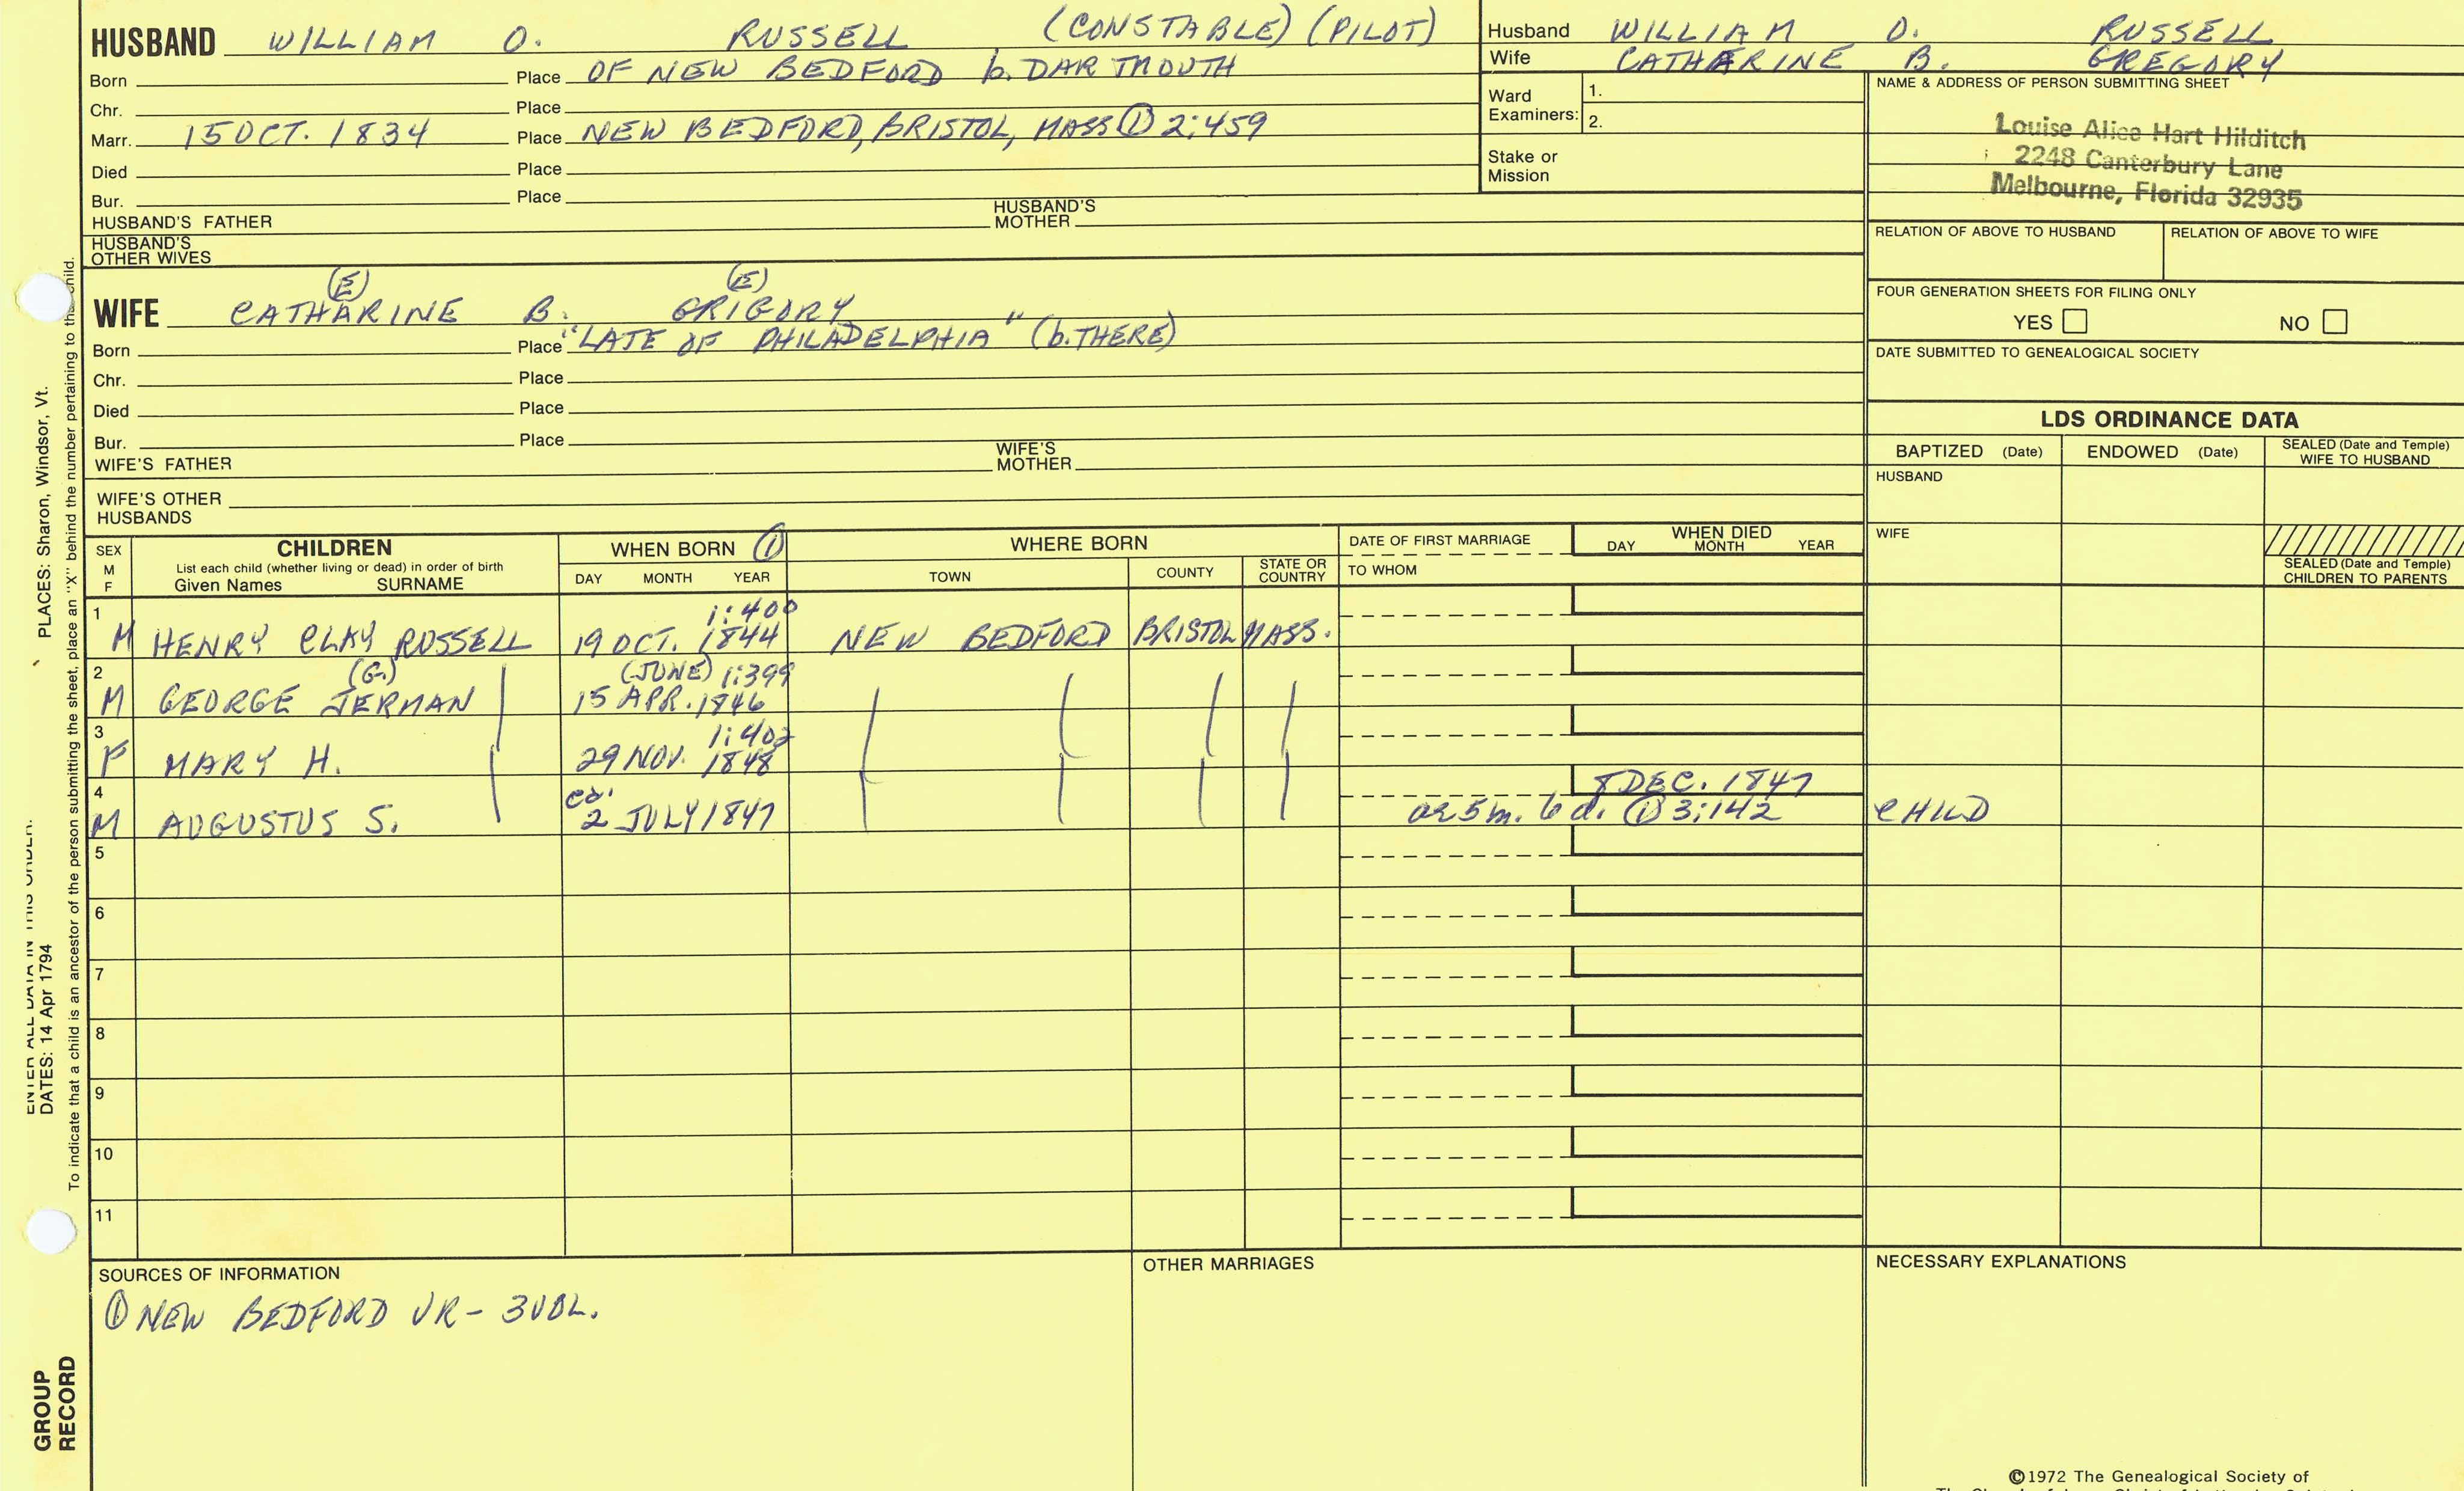 HUSBAND WILLIAM O. RUSSELL (CONSTABLE) (PILOT)
Born Place OF NEW BEDFORD b. DARTMOUTH
Chr. Place
Marr. 15 OCT. 1834 Place NEW BEDFORD, BRISTOL, MASS ① 2:459
Died Place
Bur. Place
HUSBAND'S FATHER HUSBAND'S MOTHER
HUSBAND'S OTHER WIVES
Husband WILLIAM O. RUSSELL
Wife CATHARINE B. GREGORY
Ward Examiners: 1.
2.
Stake or Mission
NAME & ADDRESS OF PERSON SUBMITTING SHEET
Louise Alice Hart Hilditch
2248 Canterbury Lane
Melbourne, Florida 32935
RELATION OF ABOVE TO HUSBAND RELATION OF ABOVE TO WIFE
FOUR GENERATION SHEETS FOR FILING ONLY
YES NO
DATE SUBMITTED TO GENEALOGICAL SOCIETY
(E) (E)
WIFE CATHARINE B. GRIGORY
Born Place "LATE OF PHILADELPHIA" (b. THERE)
Chr. Place
Died Place
Bur. Place
WIFE'S FATHER WIFE'S MOTHER
WIFE'S OTHER HUSBANDS
LDS ORDINANCE DATA
BAPTIZED (Date) ENDOWED (Date) SEALED (Date and Temple) WIFE TO HUSBAND
HUSBAND
WIFE
SEALED (Date and Temple) CHILDREN TO PARENTS
SEX M F
CHILDREN
List each child (whether living or dead) in order of birth
Given Names SURNAME
WHEN BORN ①
DAY MONTH YEAR
WHERE BORN
TOWN COUNTY STATE OR COUNTRY
DATE OF FIRST MARRIAGE
TO WHOM
WHEN DIED
DAY MONTH YEAR
1 1:400
M HENRY CLAY RUSSELL 19 OCT. 1844 NEW BEDFORD BRISTOL MASS.
2 (G.) (JUNE) 1:399
M GEORGE JERMAN 15 APR. 1846
3 1:402
F MARY H. 29 NOV. 1848
4 ca. 8 DEC. 1847
M AUGUSTUS S. 2 JULY 1847 ae 5m. 6d. ① 3:142 CHILD
5
6
7
8
9
10
11
SOURCES OF INFORMATION
① NEW BEDFORD VR - 3 VOL.
OTHER MARRIAGES
NECESSARY EXPLANATIONS
©1972 The Genealogical Society of
PLACES: Sharon, Windsor, Vt.
DATES: 14 Apr 1794
To indicate that a child is an ancestor of the person submitting the sheet, place an "X" behind the number pertaining to the child.
GROUP
RECORD